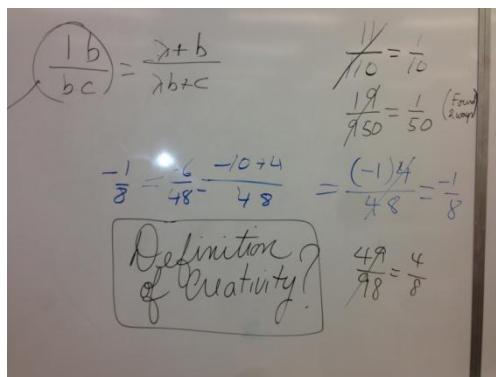 1b/bc = λ+b/λb+c
11/110 = 1/10
19/950 = 1/50 (Found 2 ways)
-1/8 = -6/48 = -10+4/48 = (-1)4/48 = -1/8
Definition
of Creativity?
49/98 = 4/8